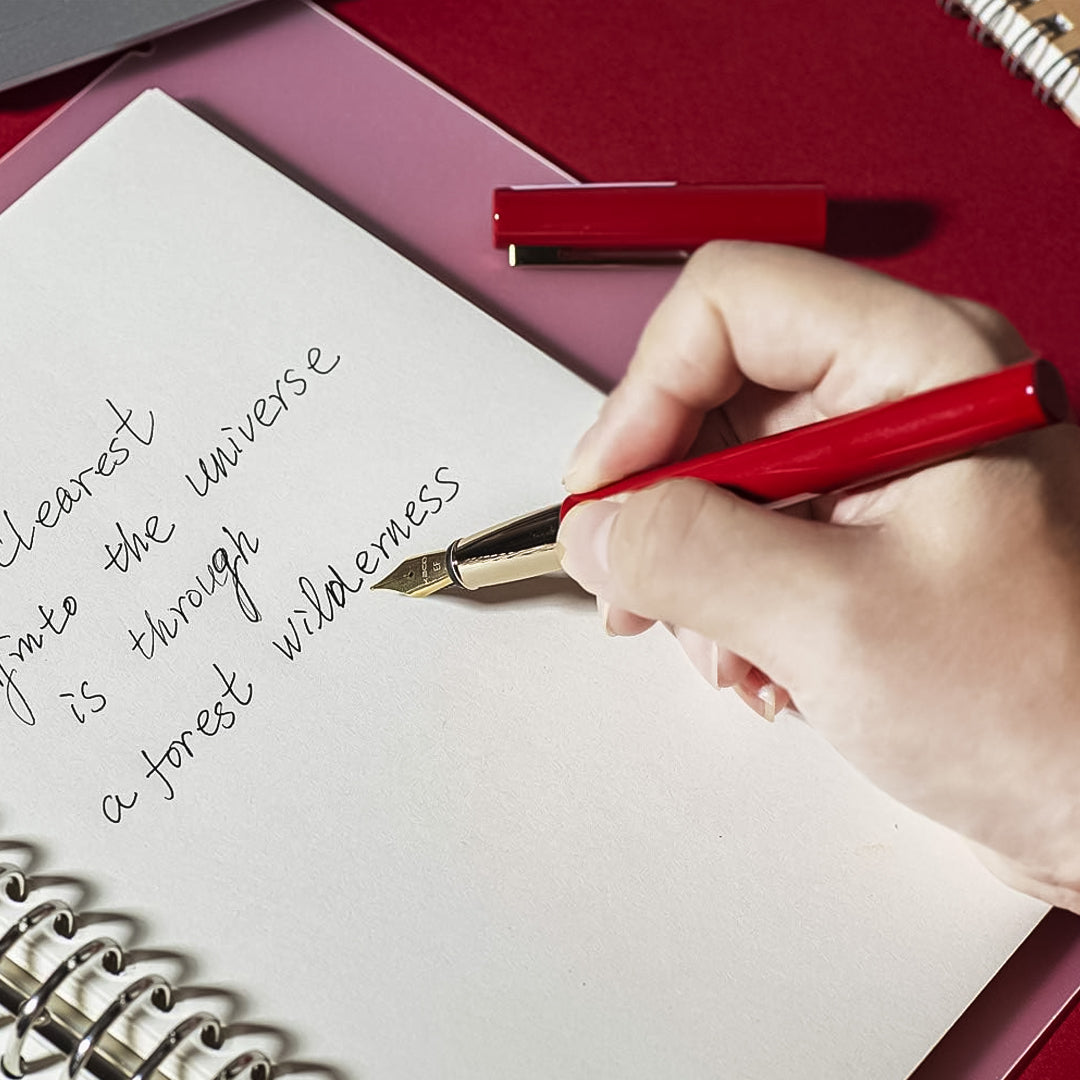 clearest
into the universe
is through
a forest wilderness
KACO
EF